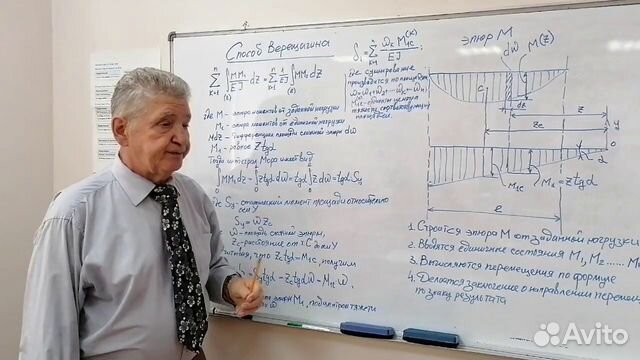 Способ Верещагина
n
Σ ∫ MM₁/EJ dz = Σ 1/EJ ∫ MM₁ dz
k=1 (l) k=1 (l)
где M - эпюр моментов от заданной нагрузки
M₁ - эпюр моментов от единичной нагрузки
Mdz - дифференциал площади сложной эпюры dω
M₁ - равное Z tgα
Тогда интеграл Мора имеет вид
∫ MM₁dz = ∫ z tgα dω = tgα ∫ z dω = tgα Sy
где Sy - статический момент площади относительно
оси Y
Sy = ω Zc
ω - площадь эпюры,
Zc - расстояние от "C" до оси Y
что Zc tgα = M₁c, получим
tgα = Zc tgα ω = M₁c ω,
эпюры M₁, под центром тяжести
ω
δ₁ = Σ ωk M₁c⁽ᵏ⁾ / EJ ;
n
k=1
где суммирование
производится по площадям
ω₁+ω₂+...+ωk...+ωn;
M₁c - ордината центра
тяжести соответствующей
площади.
эпюр M
dω M(z)
C
dz
z
zc
y
O
α
M₁c
M₁ = z tgα
l
1. Строится эпюра M от заданной нагрузки
2. Вводятся единичные состояния M₁, M₂ ...... M
3. Вычисляются перемещения по формуле
4. Делается заключение о направлении перемещ
по знаку результата
Avito